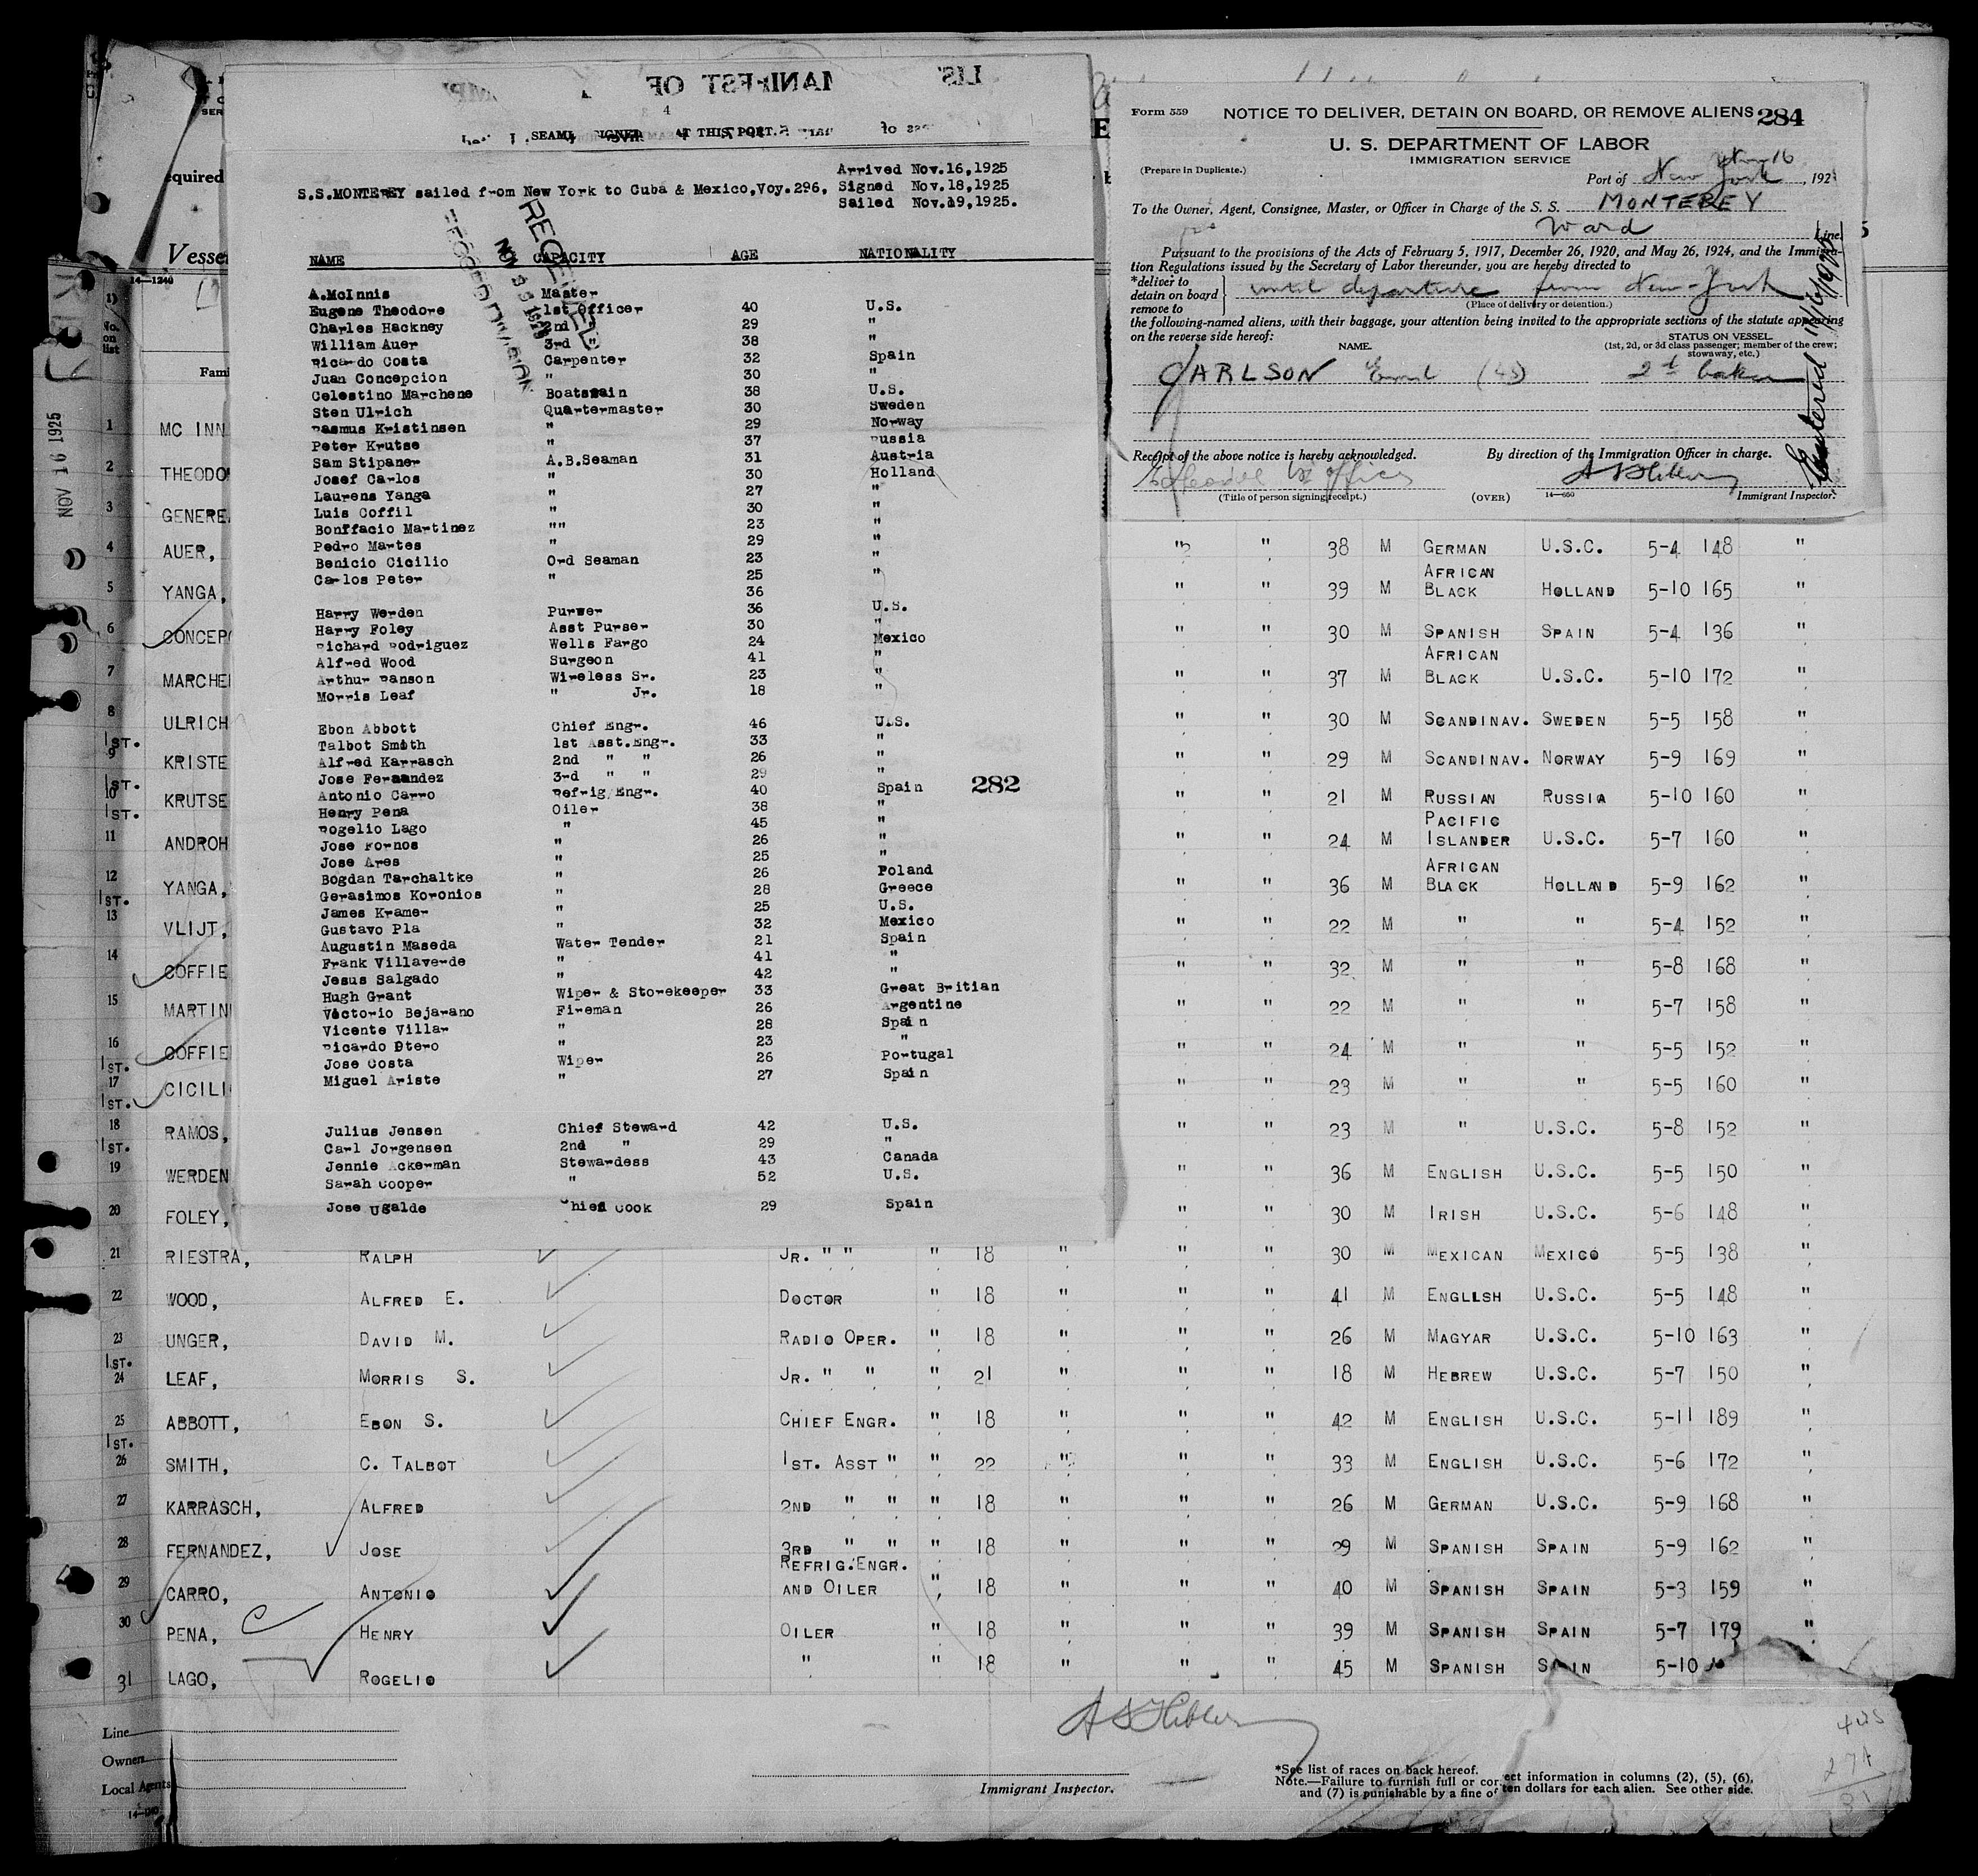 MANIFEST OF
4
SEAMEN SIGNED AT THIS PORT.
Arrived Nov.16,1925
S.S.MONTEREY sailed from New York to Cuba & Mexico,Voy.296, Signed Nov.18,1925
Sailed Nov.19,1925.
RECEIVED
NAME CAPACITY AGE NATIONALITY
A.McInnis Master
Eugene Theodore 1st Officer 40 U.S.
Charles Hackney 2nd " 29 "
William Auer 3rd " 38 "
Ricardo Costa Carpenter 32 Spain
Juan Concepcion " 30 "
Celestino Marchene Boatswain 38 U.S.
Sten Ulrich Quartermaster 30 Sweden
Rasmus Kristinsen " 29 Norway
Peter Krutse " 37 Russia
Sam Stipaner A.B.Seaman 31 Austria
Josef Carlos " 30 Holland
Laurens Yanga " 27 "
Luis Coffil " 30 "
Bonffacio Martinez "" 23 "
Pedro Martes " 29 "
Benicio Cicilio Ord Seaman 23 "
Carlos Peter " 25 "
36
Harry Werden Purser 36 U.S.
Harry Foley Asst Purser 30 "
Richard Rodriguez Wells Fargo 24 Mexico
Alfred Wood Surgeon 41 "
Arthur Ranson Wireless Sr. 23 "
Morris Leaf " Jr. 18 "
Ebon Abbott Chief Engr. 46 U.S.
Talbot Smith 1st Asst.Engr. 33 "
Alfred Karrasch 2nd " " 26 "
Jose Fernandez 3rd " " 29 "
Antonio Carro Refrig Engr. 40 Spain 282
Henry Pena Oiler 38 "
Rogelio Lago " 45 "
Jose Fornos " 26 "
Jose Ares " 25 "
Bogdan Tarchaltke " 26 Poland
Gerasimos Koronios " 28 Greece
James Kramer " 25 U.S.
Gustavo Pla " 32 Mexico
Augustin Maseda Water Tender 21 Spain
Frank Villaverde " 41 "
Jesus Salgado " 42 "
Hugh Grant Wiper & Storekeeper 33 Great Britian
Victorio Bejarano Fireman 26 Argentine
Vicente Villar " 28 Spain
Ricardo Otero " 23 "
Jose Costa Wiper 26 Portugal
Miguel Ariste " 27 Spain
Julius Jensen Chief Steward 42 U.S.
Carl Jorgensen 2nd " 29 "
Jennie Ackerman Stewardess 43 Canada
Sarah Cooper " 52 U.S.
Jose Ugalde Chief Cook 29 Spain
Form 559 NOTICE TO DELIVER, DETAIN ON BOARD, OR REMOVE ALIENS 284
U. S. DEPARTMENT OF LABOR
IMMIGRATION SERVICE
(Prepare in Duplicate.)
Nov 16
Port of New York, 192
To the Owner, Agent, Consignee, Master, or Officer in Charge of the S. S. MONTEREY
Ward Line
Pursuant to the provisions of the Acts of February 5, 1917, December 26, 1920, and May 26, 1924, and the Immigration Regulations issued by the Secretary of Labor thereunder, you are hereby directed to
*deliver to
detain on board
remove to
until departure from New-York
(Place of delivery or detention.)
the following-named aliens, with their baggage, your attention being invited to the appropriate sections of the statute appearing
on the reverse side hereof:
NAME.
STATUS ON VESSEL.
(1st, 2d, or 3d class passenger; member of the crew;
stowaway, etc.)
CARLSON Emil (45) 2d baker
Entered 11/16/1925
Receipt of the above notice is hereby acknowledged. By direction of the Immigration Officer in charge.
(Title of person signing receipt.) (OVER) 14—650 Immigrant Inspector.
equired
Vesse
14—1240
No. on list
Fami
NOV 16 1925
1 MC INN
2 THEODO
3 GENERE
4 AUER, " " 38 M GERMAN U.S.C. 5-4 148 "
5 YANGA, " " 39 M AFRICAN BLACK HOLLAND 5-10 165 "
6 CONCEP " " 30 M SPANISH SPAIN 5-4 136 "
7 MARCHE " " 37 M AFRICAN BLACK U.S.C. 5-10 172 "
8 ULRICH " " 30 M SCANDINAV. SWEDEN 5-5 158 "
1ST.
9 KRISTE " " 29 M SCANDINAV. NORWAY 5-9 169 "
1ST.
10 KRUTSE " " 21 M RUSSIAN RUSSIA 5-10 160 "
1ST.
11 ANDROH " " 24 M PACIFIC ISLANDER U.S.C. 5-7 160 "
12 YANGA, " " 36 M AFRICAN BLACK HOLLAND 5-9 162 "
1ST.
13 VLIJT, " " 22 M " " 5-4 152 "
14 COFFIE " " 32 M " " 5-8 168 "
15 MARTIN " " 22 M " " 5-7 158 "
16 COFFIE " " 24 M " " 5-5 152 "
1ST.
17 CICILI " " 23 M " " 5-5 160 "
1ST.
18 RAMOS, " " 23 M " U.S.C. 5-8 152 "
1ST.
19 WERDEN " " 36 M ENGLISH U.S.C. 5-5 150 "
20 FOLEY, " " 30 M IRISH U.S.C. 5-6 148 "
21 RIESTRA, RALPH JR. " " " 18 " " " 30 M MEXICAN MEXICO 5-5 138 "
22 WOOD, ALFRED E. DOCTOR " 18 " " " 41 M ENGLLSH U.S.C. 5-5 148 "
23 UNGER, DAVID M. RADIO OPER. " 18 " " " 26 M MAGYAR U.S.C. 5-10 163 "
1ST.
24 LEAF, MORRIS S. JR. " " " 21 " " " 18 M HEBREW U.S.C. 5-7 150 "
25 ABBOTT, EBON S. CHIEF ENGR. " 18 " " " 42 M ENGLISH U.S.C. 5-11 189 "
1ST.
26 SMITH, C. TALBOT 1ST. ASST " " 22 " " " 33 M ENGLISH U.S.C. 5-6 172 "
27 KARRASCH, ALFRED 2ND " " " 18 " " " 26 M GERMAN U.S.C. 5-9 168 "
28 FERNANDEZ, JOSE 3RD " " " 18 " " " 29 M SPANISH SPAIN 5-9 162 "
29 CARRO, ANTONIO REFRIG.ENGR. AND OILER " 18 " " " 40 M SPANISH SPAIN 5-3 159 "
30 PENA, HENRY OILER " 18 " " " 39 M SPANISH SPAIN 5-7 179 "
31 LAGO, ROGELIO " " 18 " " " 45 M SPANISH SPAIN 5-10
Line
Owners
Local Agents
Immigrant Inspector.
*See list of races on back hereof.
Note.—Failure to furnish full or correct information in columns (2), (5), (6),
and (7) is punishable by a fine of ten dollars for each alien. See other side.